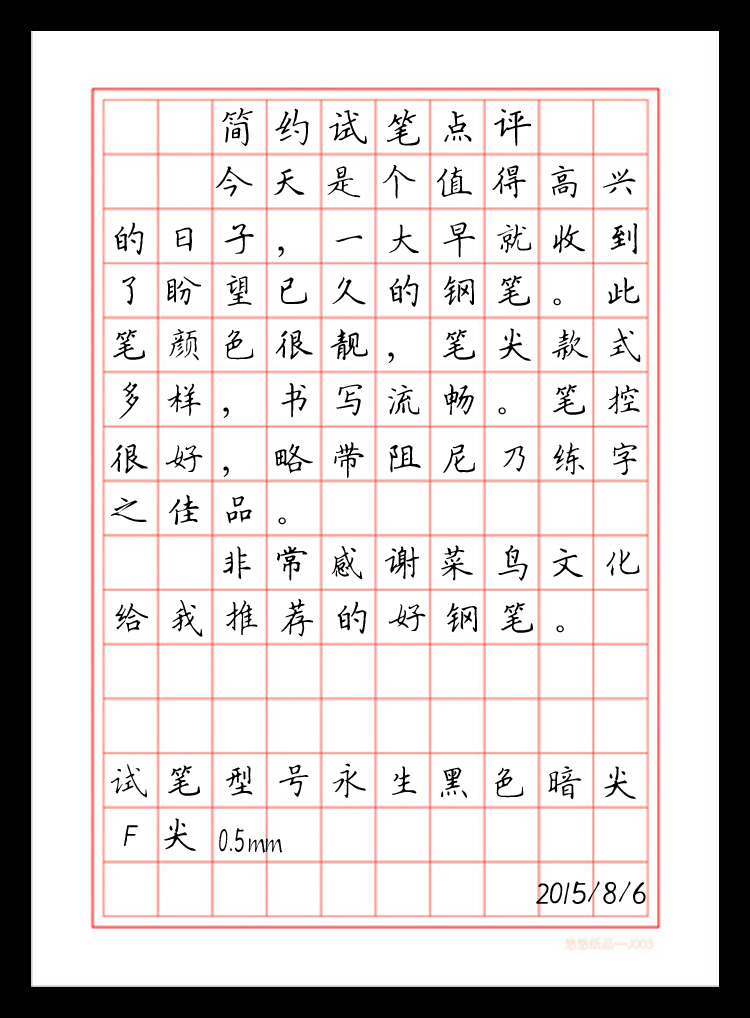 简约试笔点评
今天是个值得高兴
的日子，一大早就收到
了盼望已久的钢笔。此
笔颜色很靓，笔尖款式
多样，书写流畅。笔控
很好，略带阻尼乃练字
之佳品。
非常感谢菜鸟文化
给我推荐的好钢笔。
试笔型号永生黑色暗尖
F尖 0.5mm
2015/8/6
悠悠纸品—J003